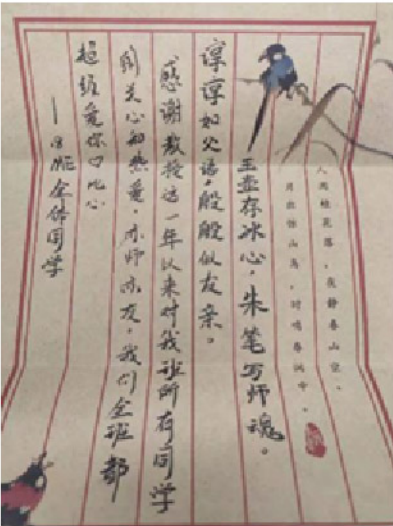 人闲桂花落，夜静春山空。
月出惊山鸟，时鸣春涧中。
玉壶存冰心，朱笔写师魂。
谆谆如父语，殷殷似友亲。
感谢教授这一年以来对我班所有同学
的关心和热爱，亦师亦友，我们全班都
超级爱你口比心
—18 全体同学